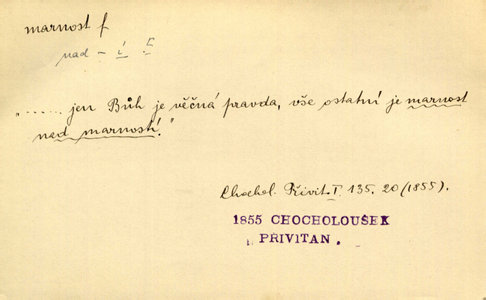 marnost f
nad - í
"...... jen Bůh je věčná pravda, vše ostatní je marnost
nad marností."
Chochol. Přivit. I. 135. 20 (1855).
1855 CHOCHOLOUŠEK
PŘIVITAN.